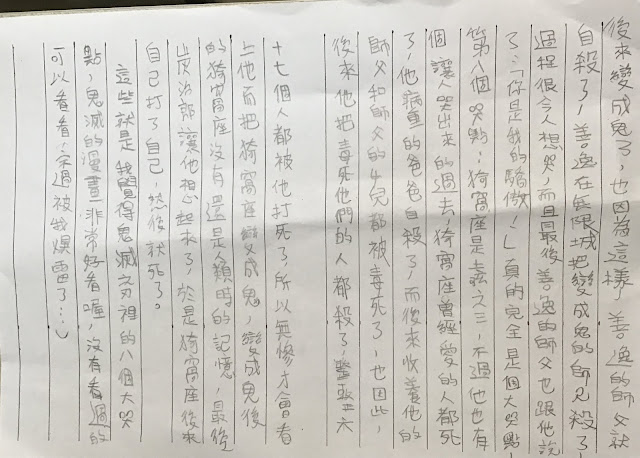 後來變成鬼了，也因為這樣，善逸的師父就
自殺了，善逸在無限城把變成鬼的師兄殺了，
過程很令人想哭，而且最後善逸的師父也跟他說
了：「你是我的驕傲！」真的完全是個大哭點，
第八個哭點：猗窩座是上弦之三，不過他也有
個讓人哭出來的過去，猗窩座曾經愛的人都死
了，他病重的爸爸自殺了，而後來收養他的
師父和師父的女兒都被毒死了，也因此，
後來他把毒死他們的人都殺了，整整六
十七個人都被他打死了，所以無慘才會看
上他而把猗窩座變成鬼，變成鬼後
的猗窩座沒有還是人類時的記憶，最後
炭治郎讓他想起來了，於是猗窩座後來
自己打了自己，然後就死了。
這些就是我覺得鬼滅之刃裡的八個大哭
點，鬼滅的漫畫非常好看喔，沒有看過的
可以看看，不過被我爆雷了…